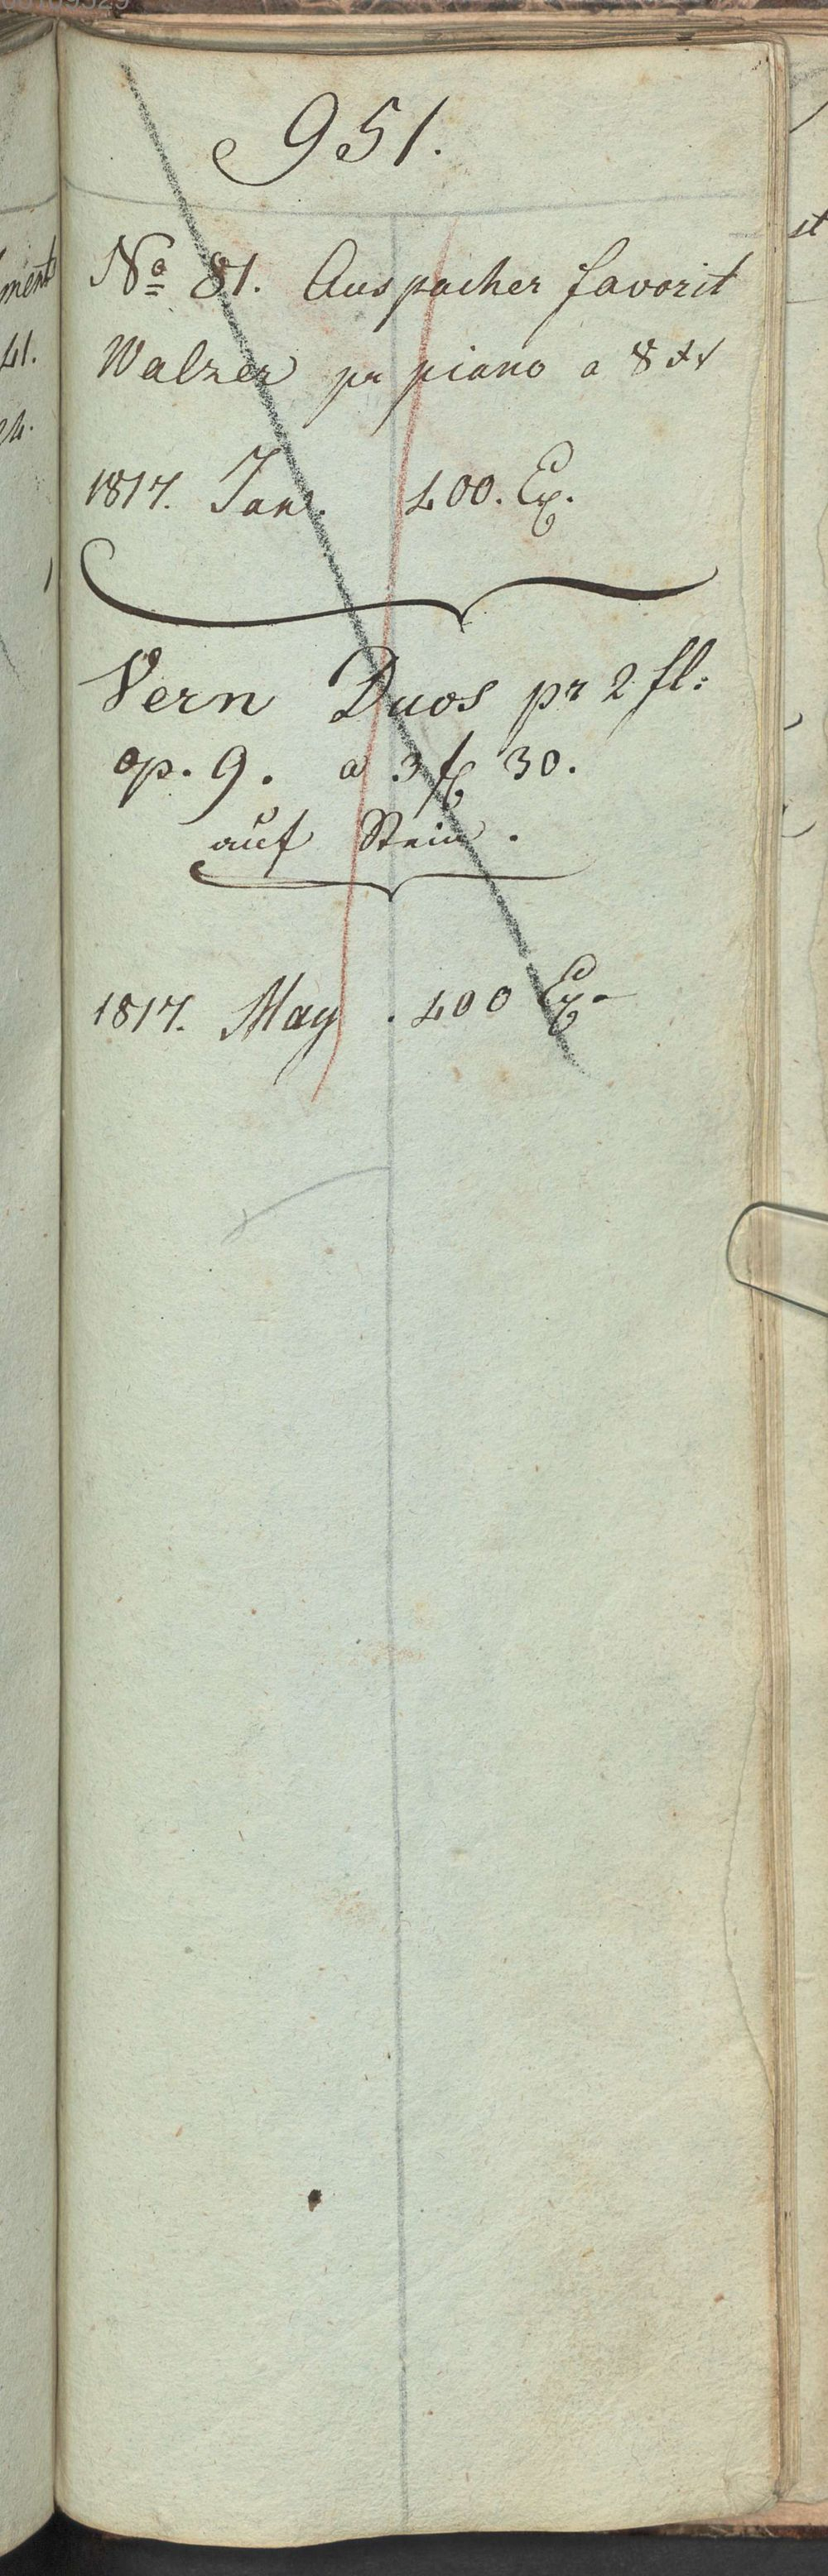 951.
No 81. Auspacher favorit
Walzer pr piano a 8 xr
1817. Jan. 400. Ex.
Vern Duos pr 2 fl:
op. 9. a 3 fl 30.
auf Stein.
1817. May. 400 Ex.
ment
41.